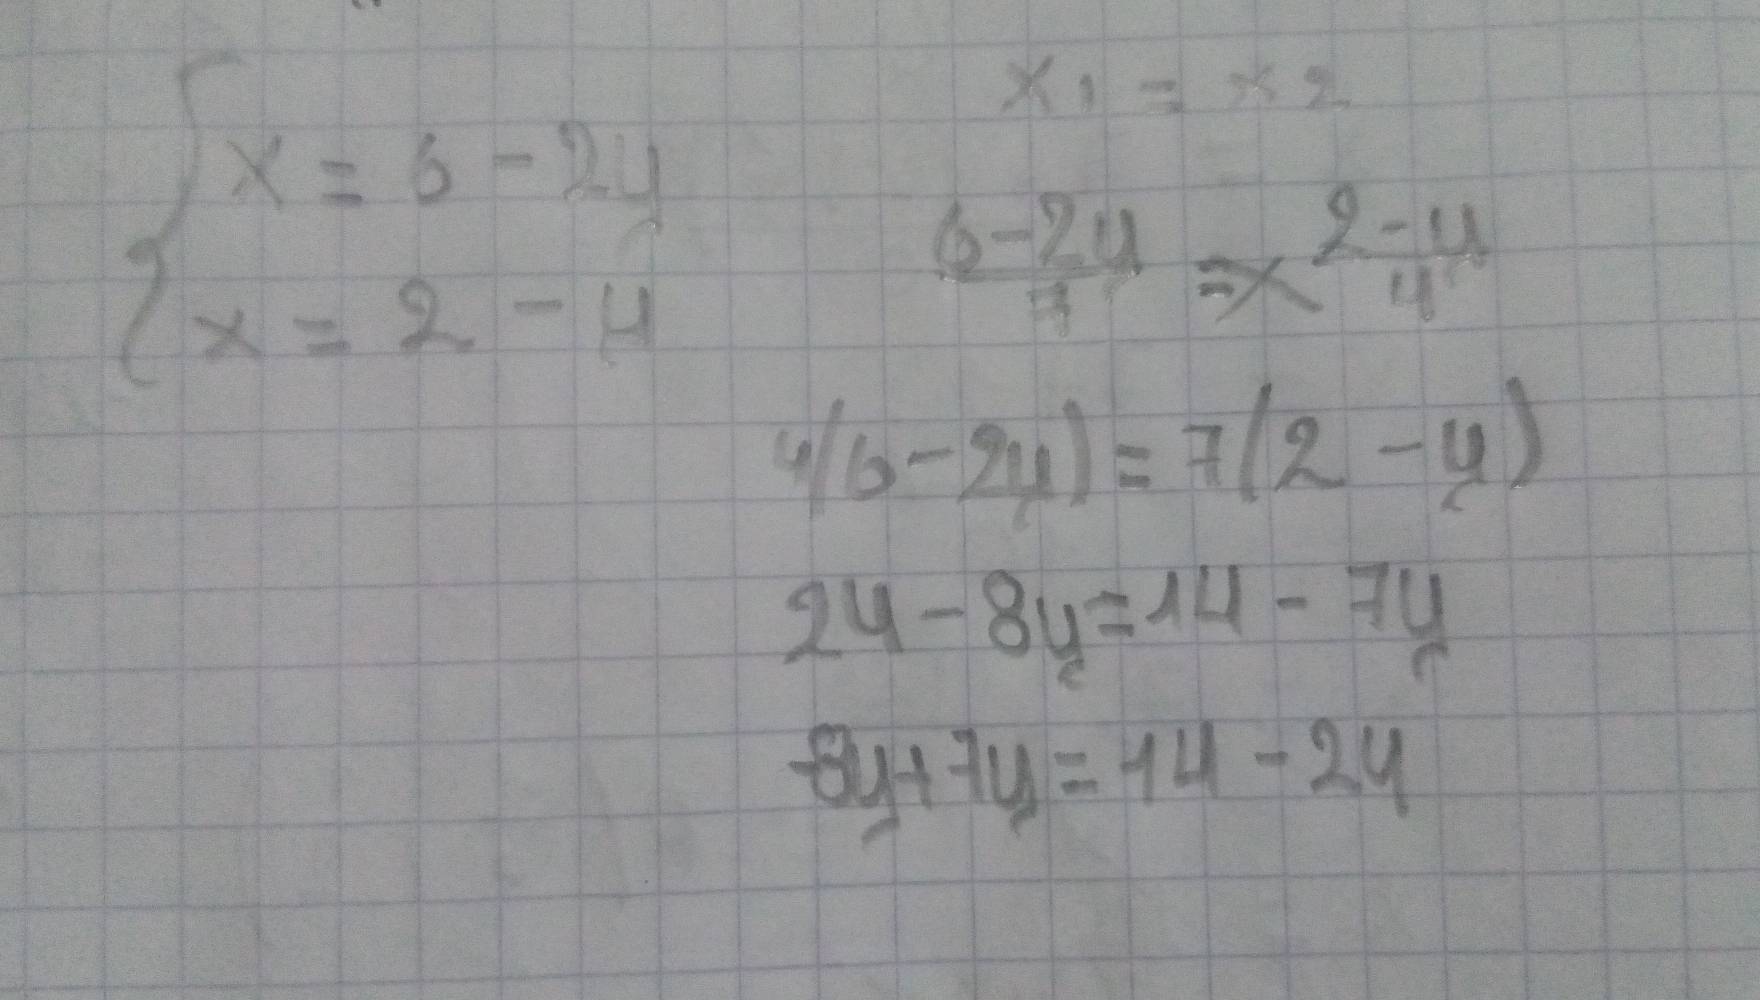 { x = 6 - 2y
x = 2 - y
x1 = x2
6-2y/7 = x 2-y/4
4(6-2y) = 7(2-y)
24 - 8y = 14 - 7y
-8y+7y = 14 - 24